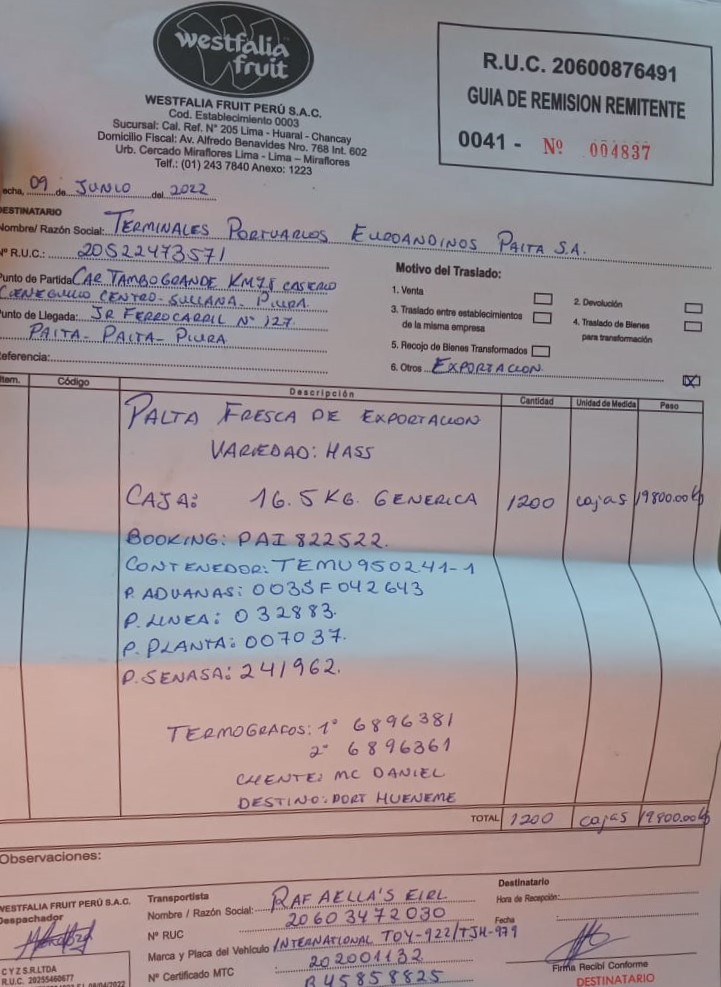 westfalia
fruit
WESTFALIA FRUIT PERÚ S.A.C.
Cod. Establecimiento 0003
Sucursal: Cal. Ref. N° 205 Lima - Huaral - Chancay
Domicilio Fiscal: Av. Alfredo Benavides Nro. 768 Int. 602
Urb. Cercado Miraflores Lima - Lima – Miraflores
Telf.: (01) 243 7840 Anexo: 1223
R.U.C. 20600876491
GUIA DE REMISION REMITENTE
0041 - Nº 004837
echa, 09 de JUNIO del 2022
DESTINATARIO
Nombre/ Razón Social: TERMINALES PORTUARIOS EUROANDINOS PAITA S.A.
Nº R.U.C.: 20522473571
Punto de Partida CAR TAMBOGRANDE KM78 CASERIO
CIENEGUILLO CENTRO - SULLANA - PIURA
Punto de Llegada: JR FERROCARRIL Nº 127
PAITA - PAITA - PIURA
Referencia:
Motivo del Traslado:
1. Venta
2. Devolución
3. Traslado entre establecimientos
de la misma empresa
4. Traslado de Bienes
para transformación
5. Recojo de Bienes Transformados
6. Otros EXPORTACION X
Item. Código Descripción Cantidad Unidad de Medida Peso
PALTA FRESCA DE EXPORTACION
VARIEDAD: HASS
CAJA: 16.5 KG. GENERICA 1200 cajas 19800.00 kg
BOOKING: PAI 822522.
CONTENEDOR: TEMU950241-1
P. ADUANAS: 003SF042643
P. LINEA: 032883.
P. PLANTA: 007037.
P. SENASA: 241962.
TERMOGRAFOS: 1° 6896381
2° 6896361
CLIENTE: MC DANIEL
DESTINO: PORT HUENEME
TOTAL 1200 cajas 19800.00 kg
Observaciones:
WESTFALIA FRUIT PERÚ S.A.C.
Despachador
C Y Z S.R.LTDA
R.U.C. 20255460677
Transportista
Nombre / Razón Social: RAFAELLA'S EIRL
Nº RUC 20603472030
Marca y Placa del Vehículo INTERNATIONAL TOY-922/TJH-979
Nº Certificado MTC 202001132
R45858825
Destinatario
Hora de Recepción:
Fecha
Firma Recibí Conforme
DESTINATARIO